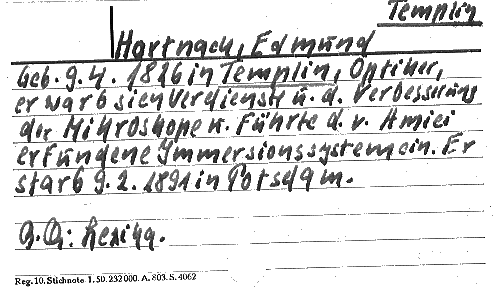 Templin
Hartnack, Edmund
Geb. 9.4.1826 in Templin, Optiker,
erwarb sich Verdienste u. d. Verbesserung
der Mikroskope u. führte d. v. Amici
erfundene Immersionssystem ein. Er
starb 9.2.1891 in Potsdam.
A.Q: Lexika.
Reg. 10. Stichnote 1. 50. 232000. A. 803. S. 4062